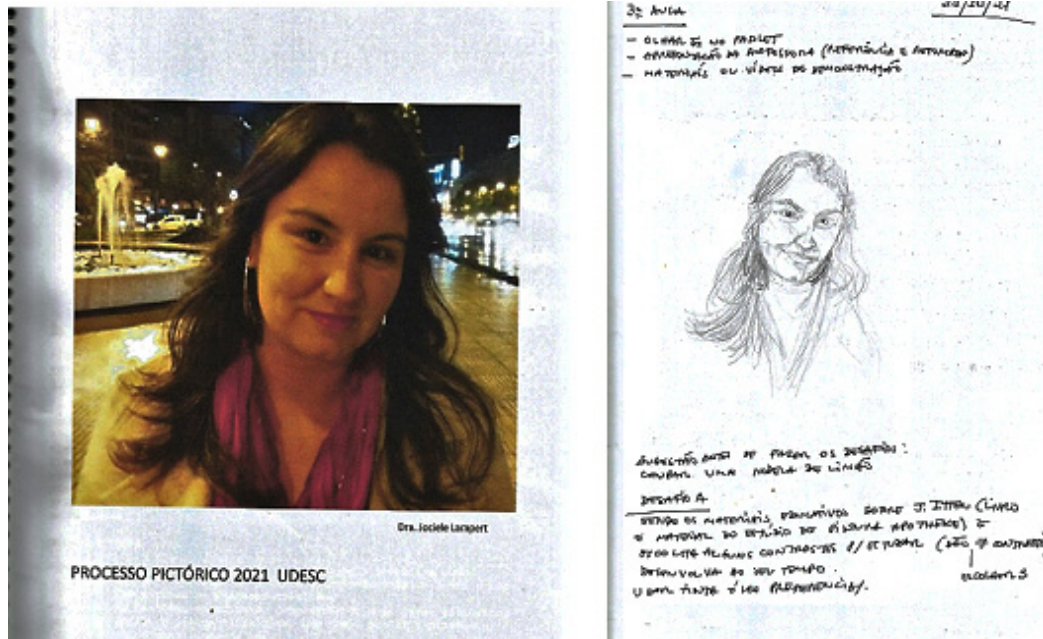 Dra. Jociele Lampert
PROCESSO PICTÓRICO 2021 UDESC
3ª AULA
- OLHAR NO PADLET
- APRESENTAÇÃO DA (REFERÊNCIA E
- MATERIAIS OU VÍDEOS DE DEMONSTRAÇÃO
SUGESTÃO ANTES DE FAZER OS DESAFIOS:
CHUPAR UMA RODELA DE LIMÃO
DESAFIO A
OS MATERIAIS EDUCATIVOS SOBRE J. ITTEN (LIVRO
E MATERIAL DO ESTÚDIO DE PINTURA APOTHEKE) E
ALGUNS CONTRASTES P/ ESTUDAR (SÃO 7 CONTRASTES
DESENVOLVA AO SEU TEMPO.
ESCOLHAM 3
USAR TINTA PREFERÊNCIA.